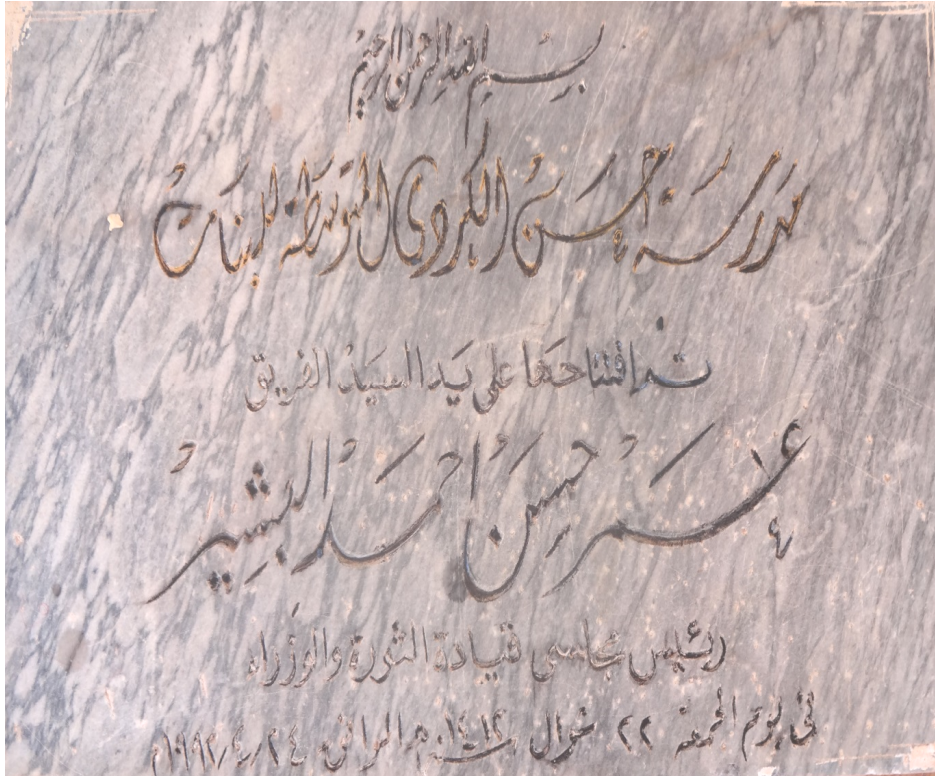 بسم الله الرحمن الرحيم
مدرسة حسن الكردي المتوسطة للبنات
تم افتتاحها على يد السيد الفريق
عمر حسن احمد البشير
رئيس مجلسي قيادة الثورة والوزراء
في يوم الجمعة ٢٢ شوال سنة ١٤١٢ هـ الموافق ٢٤/٤/١٩٩٢م